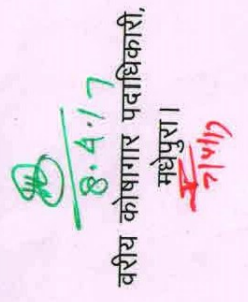 8.4.17
वरीय कोषागार पदाधिकारी,
मधेपुरा।
7/4/17